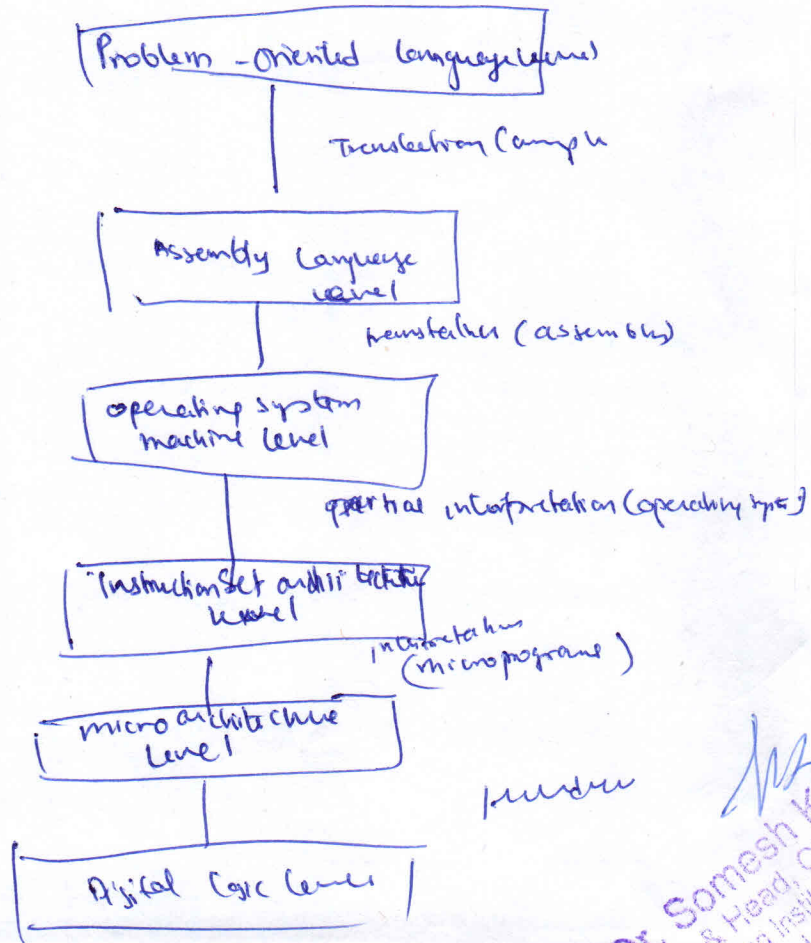 Problem - oriented Language level
Translation
Assembly Language
level
translation (assembler)
operating system
machine level
partial interpretation (operating system)
Instruction Set architecture
level
interpretation
(microprograms)
micro architecture
Level
hardware
Digital Logic Level
Dr. Somesh K
& Head,